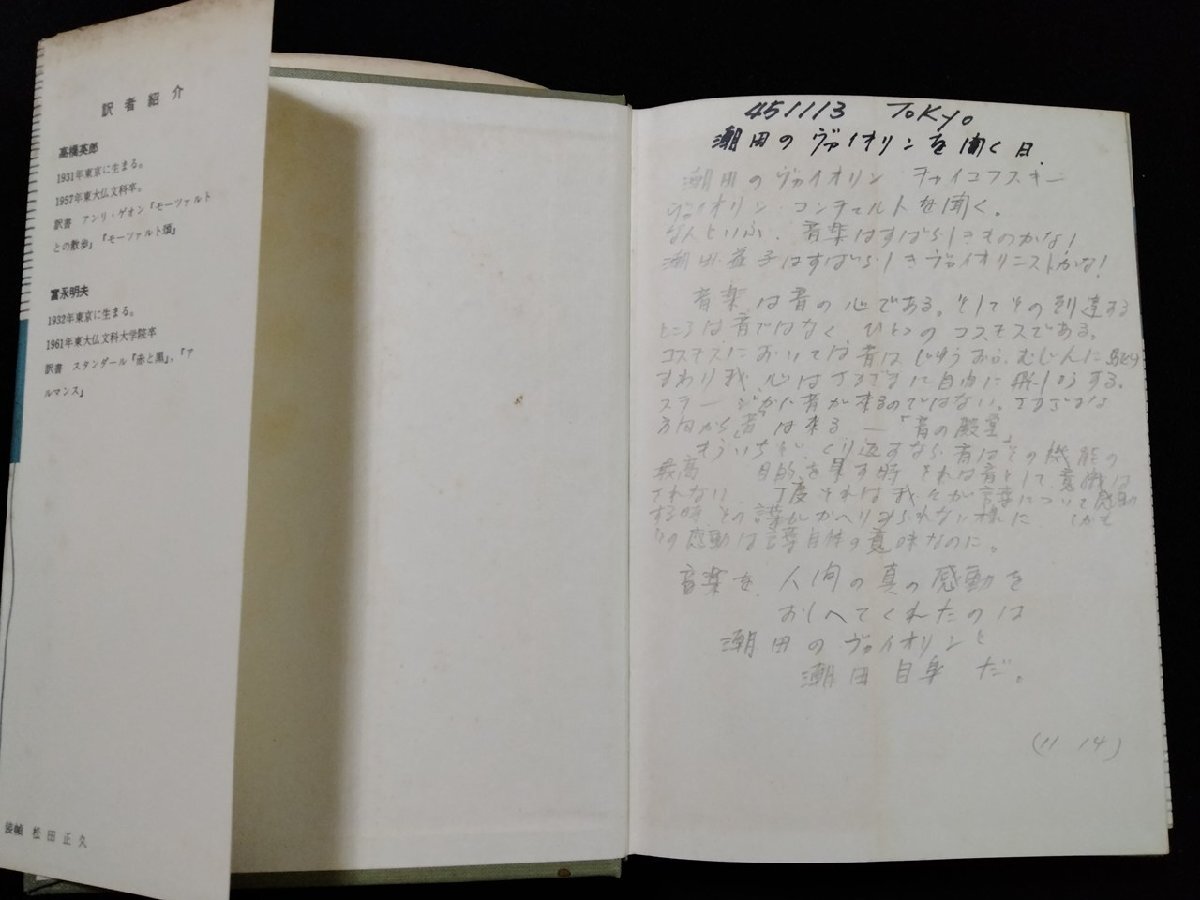 訳者紹介
高橋英郎
1931年東京に生まる。
1957年東大仏文科卒。
訳書 アンリ・ゲオン『モーツァルト
との散歩』『モーツァルト頌』
富永明夫
1932年東京に生まる。
1961年東大仏文科大学院卒
訳書 スタンダール『赤と黒』、『ア
ルマンス』
装幀 松田正久
451113 TOKYO
潮田のヴァイオリンを聞く日.
潮田のヴァイオリン チャイコフスキー
ヴァイオリン・コンチェルトを聞く。
なんといふ、音楽はすばらしきものかな!
潮田益子はすばらしきヴァイオリニストかな!
音楽は音の心である。そしてその到達する
ところは音ではなく ひとつのコスモスである。
コスモスにおいては音はじゆうおう、むじんに駆け
まわり我心はさまざまに自由に飛しようする。
ステージから音が来るのではない。さまざまな
方向から「音」は来る ー「音の殿堂」
もういちど、くり返すなら、音はその機能の
最高 目的を果す時 それは音として意識は
されない 丁度それは我々が言葉について感動
する時 その言葉がかへりみられない様に しかも
その感動は言葉自体の意味なのに。
音楽を、人間の真の感動を
おしへてくれたのは
潮田のヴァイオリンと
潮田自身だ。
(11 14)